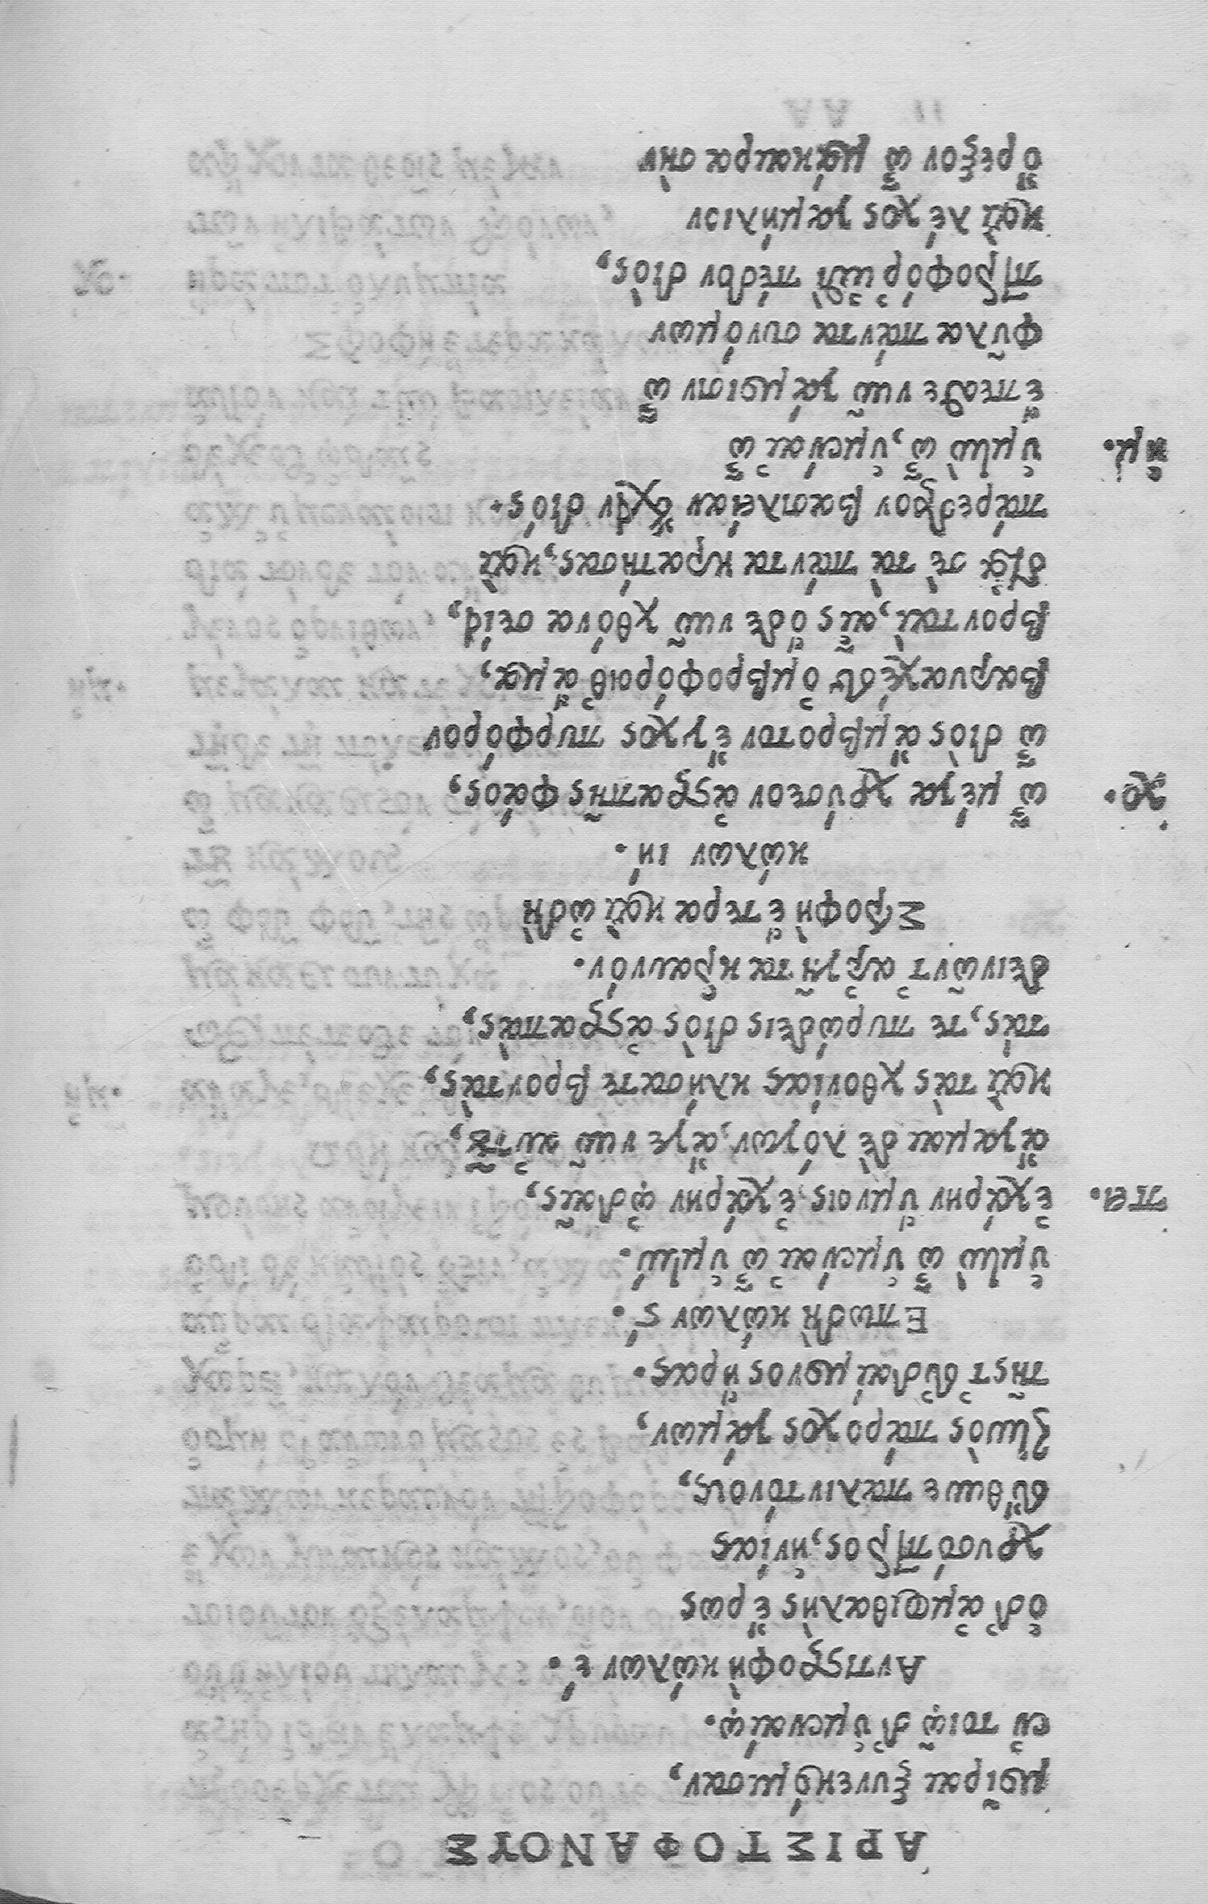 ΑΡΙΣΤΟΦΑΝΟΥΣ
μοῖραι ξυνεκόμισαν,
ἐν τοιῷδ᾽ ὑμεναίῳ.
Αντιστροφὴ κώλων έ.
ὁ δ᾽ ἀμφιθαλὴς ἔρως
χρυσόπτερος, ἡνίας
εὔθυνε παλιντόνους,
ζηνὸς πάροχος γάμων,
τῆς τ᾽ εὐδαίμονος ἥρας.
Επωδὴ κώλων ϛ´.
ὑμὴν ὦ ὑμέναι᾽ ὦ ὑμήν.
πει. ἐχάρην ὕμνοις, ἐχάρην ᾠδαῖς,
ἄγαμαι δὲ λόγων, ἄγε νῦν αὐτοῦ,
καὶ τὰς χθονίας κλήσατε βροντὰς,
τάς, τε πυρώδεις διὸς ἀστραπὰς,
δεινῶν τ᾽ ἀργῆτα κεραυνόν.
Στροφὴ ἑτέρα καὶ ᾠδὴ
κώλων ιή.
χο. ὦ μέγα χρύσεον ἀστραπῆς φάος,
ὦ διὸς ἄμβροτον ἔγχος πυρφόρον
βαρυαχέες ὀμβροφόροιθ᾽ ἅμα,
βρονταὶ, αἷς ὅδε νῦν χθόνα σείει,
διὰ σὲ τὰ πάντα κρατήσας, καὶ
πάρεδρον βασιλείαν ἔχει διός.
ἡμ. ὑμὴν ὦ, ὑμέναι᾽ ὦ
ἕπεσθε νῦν γάμοισιν ὦ
φῦλα πάντα συνόμων
πτεροφόρ᾽ ἐπὶ πέδον διὸς,
καὶ λέχος γαμήλιον
ὄρεξον ὦ μάκαιρα σὴν